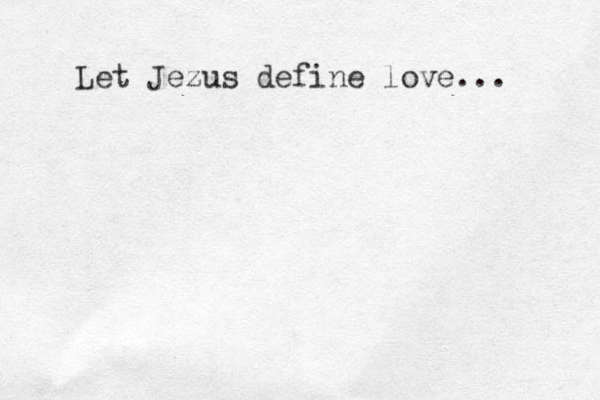 Let Jezus define love...